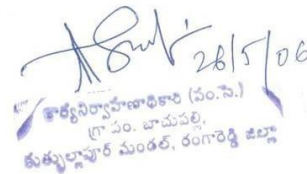 26/5/06
కార్యనిర్వహణాధికారి (పం.సె.)
గ్రా పం. బాచుపల్లి,
కుత్బుల్లాపూర్ మండల్, రంగారెడ్డి జిల్లా